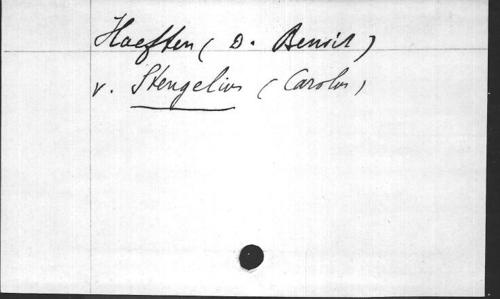 Haeften (D. Benoit)
v. Stengelius (Carolus)